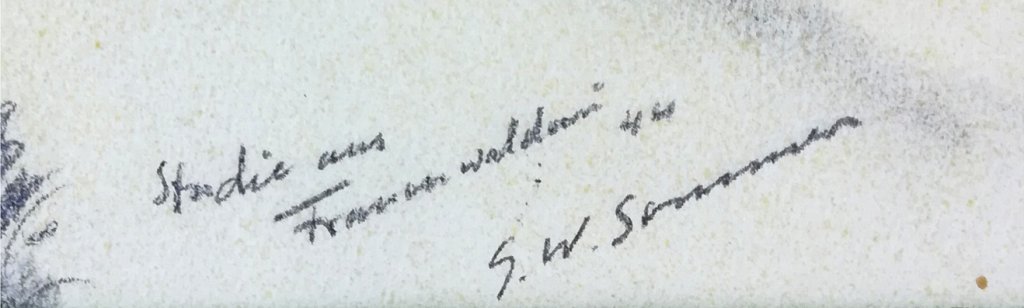 Studie aus
Frauenwald
44
G. W. Sommer